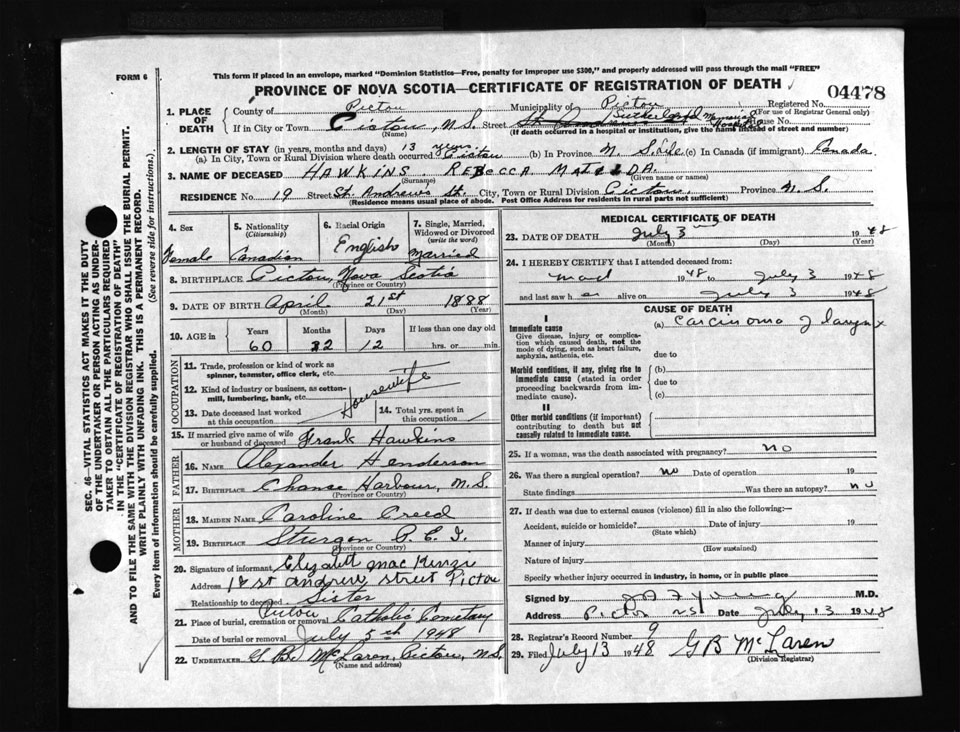 FORM 6
This form if placed in an envelope, marked "Dominion Statistics—Free, penalty for improper use $300," and properly addressed will pass through the mail "FREE"
PROVINCE OF NOVA SCOTIA—CERTIFICATE OF REGISTRATION OF DEATH
04478
1. PLACE OF DEATH County of Pictou Municipality of Pictou Registered No. (For use of Registrar General only)
If in City or Town Pictou, N.S. Street Sutherland Memorial Hospital House No.
(If death occurred in a hospital or institution, give the name instead of street and number)
2. LENGTH OF STAY (in years, months and days) 13 years
(a) In City, Town or Rural Division where death occurred Pictou (b) In Province N.S. Life (c) In Canada (if immigrant) Canada
3. NAME OF DECEASED HAWKINS REBECCA
(Surname) (Given name or names)
RESIDENCE No. 19 Street St. Andrews St. City, Town or Rural Division Pictou Province N.S.
(Residence means usual place of abode. Post Office Address for residents in rural parts not sufficient)
4. Sex Female
5. Nationality (Citizenship) Canadian
6. Racial Origin English
7. Single, Married, Widowed or Divorced (write the word) Married
8. BIRTHPLACE Pictou, Nova Scotia
(Province or Country)
9. DATE OF BIRTH April 21st 1888
(Month) (Day) (Year)
10. AGE in Years Months Days If less than one day old
60 2 12 hrs. or min.
OCCUPATION
11. Trade, profession or kind of work as spinner, teamster, office clerk, etc.
12. Kind of industry or business, as cotton-mill, lumbering, bank, etc.
Housewife
13. Date deceased last worked at this occupation
14. Total yrs. spent in this occupation
15. If married give name of wife or husband of deceased Frank Hawkins
FATHER
16. NAME Alexander Henderson
17. BIRTHPLACE Chance Harbour, N.S.
(Province or Country)
MOTHER
18. MAIDEN NAME Caroline Creed
19. BIRTHPLACE Sturgon P.E.I.
(Province or Country)
20. Signature of informant
Address 18 st andrew street Pictou
Relationship to deceased Sister
21. Place of burial, cremation or removal Pictou Catholic Cemetary
Date of burial or removal July 5th 1948
22. UNDERTAKER G. B. McLaren, Pictou, N.S.
(Name and address)
MEDICAL CERTIFICATE OF DEATH
23. DATE OF DEATH July 3 1948
(Month) (Day) (Year)
24. I HEREBY CERTIFY that I attended deceased from:
1948 to July 3 1948
and last saw her alive on July 3 1948
CAUSE OF DEATH
I
Immediate cause
Give disease, injury or complication which caused death, not the mode of dying, such as heart failure, asphyxia, asthenia, etc.
(a) Carcinoma of larynx
due to
Morbid conditions, if any, giving rise to immediate cause (stated in order proceeding backwards from immediate cause).
(b)
due to
(c)
II
Other morbid conditions (if important) contributing to death but not causally related to immediate cause.
25. If a woman, was the death associated with pregnancy? no
26. Was there a surgical operation? no Date of operation 19
State findings Was there an autopsy? no
27. If death was due to external causes (violence) fill in also the following:—
Accident, suicide or homicide? Date of injury 19
(State which)
Manner of injury
(How sustained)
Nature of injury
Specify whether injury occurred in industry, in home, or in public place
Signed by Young M.D.
Address Pictou NS Date July 13 1948
28. Registrar's Record Number 9
29. Filed July 13 1948 G B McLaren
(Division Registrar)
SEC. 46—VITAL STATISTICS ACT MAKES IT THE DUTY
OF THE UNDERTAKER OR PERSON ACTING AS UNDER-
TAKER TO OBTAIN ALL THE PARTICULARS REQUIRED
IN THE "CERTIFICATE OF REGISTRATION OF DEATH"
AND TO FILE THE SAME WITH THE DIVISION REGISTRAR WHO SHALL ISSUE THE BURIAL PERMIT.
WRITE PLAINLY WITH UNFADING INK. THIS IS A PERMANENT RECORD.
Every item of information should be carefully supplied. (See reverse side for instructions.)